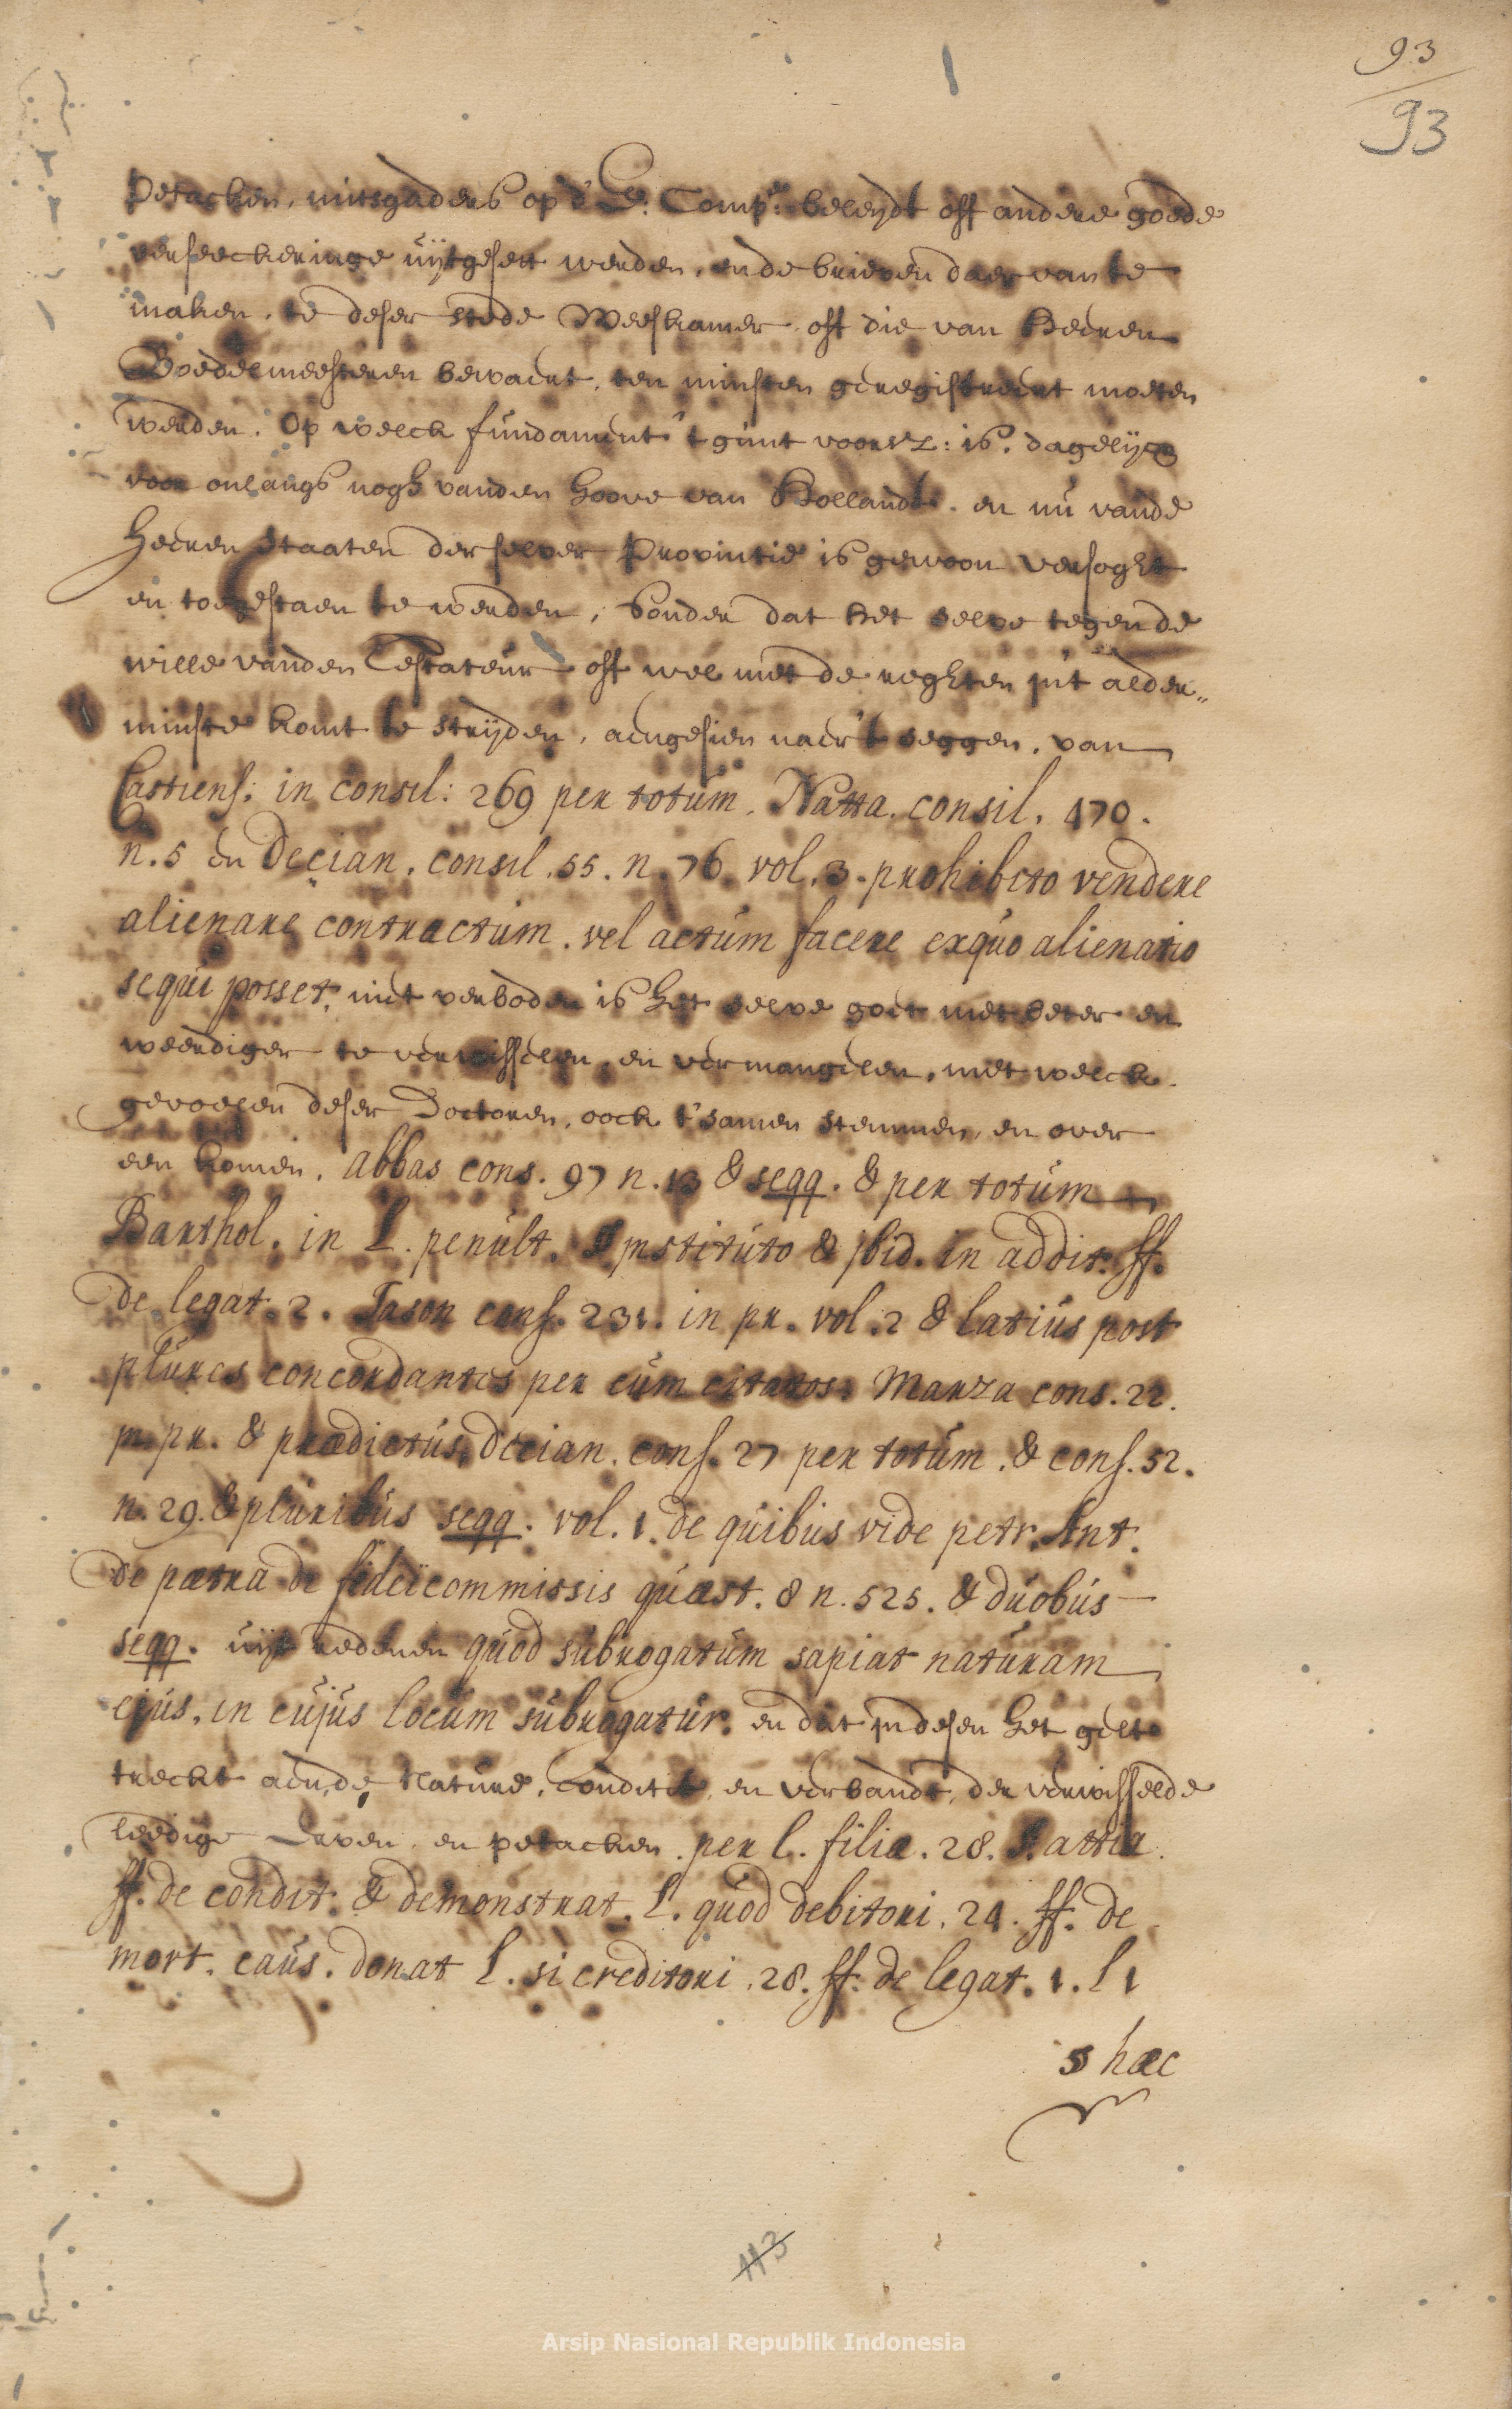 93
93
petacken, mitsgaders op d' E: Comp:e beleijdt off andere goede
verseeckeringe uijtgeset werden, ende brieven daer van te
maken, te deser stede Weeskamer, off die van Heeren
Boedelmeesteren bewaert, ten minsten geregistreert moeten
werden. Op welck fundament 't gunt voorsz: is, dagelijcx
voor onlangs nogh vanden Hoove van Hollandt, en nu vande
Heeren Staaten der selver Provintie is gewoon versoght
en toegestaen te werden, sonder dat het selve tegen de
wille vanden Testateur off wel met de reghten in't alder„
minste komt te strijden, aengesien naer 't seggen, van
Castrens: in consil: 269 per totum, Natta. consil. 470.
n. 5 en Decian. consil. 55. n. 76. vol. 3. prohibito vendere
alienare contractum. vel actum facere ex quo alienatio
sequi posset, niet verboden is het selve goet met beter en
weerdiger te verwisselen, en vermangelen, met welck
gevoelen deser Doctoren, oock t' samen stemmen, en over
een komen. Abbas cons. 97 n. 13 & seqq. & per totum
Barthol. in L. penult. § jnstituto & jbid. in addit. ff.
de legat. 2. Jason cons. 231. in pr. vol. 2 & latius post
plures concordantes per eum citatos. Marza cons. 22.
jn pr. & prædictus, Decian. cons. 27 per totum. & cons. 52.
n. 29. & pluribus seqq. vol. 1. de quibus vide petr. Ant.
de pætra de fideicommissis quæst. 8 n. 525. & duobus
seqq. uijt redenen quod subrogatum sapiat naturam
ejus, in cujus locum subrogatur. en dat jn desen het gelt
treckt aen de Nature, conditie, en verbandt, der verwisselde
leedige Erven, en petacken. per l. filiæ. 28. §. attia.
ff. de condit: & demonstrat. L. quod debitori. 24. ff. de
mort. caus. donat L. si creditori. 28. ff. de legat. 1. l 1
§ hæc
113
Arsip Nasional Republik Indonesia